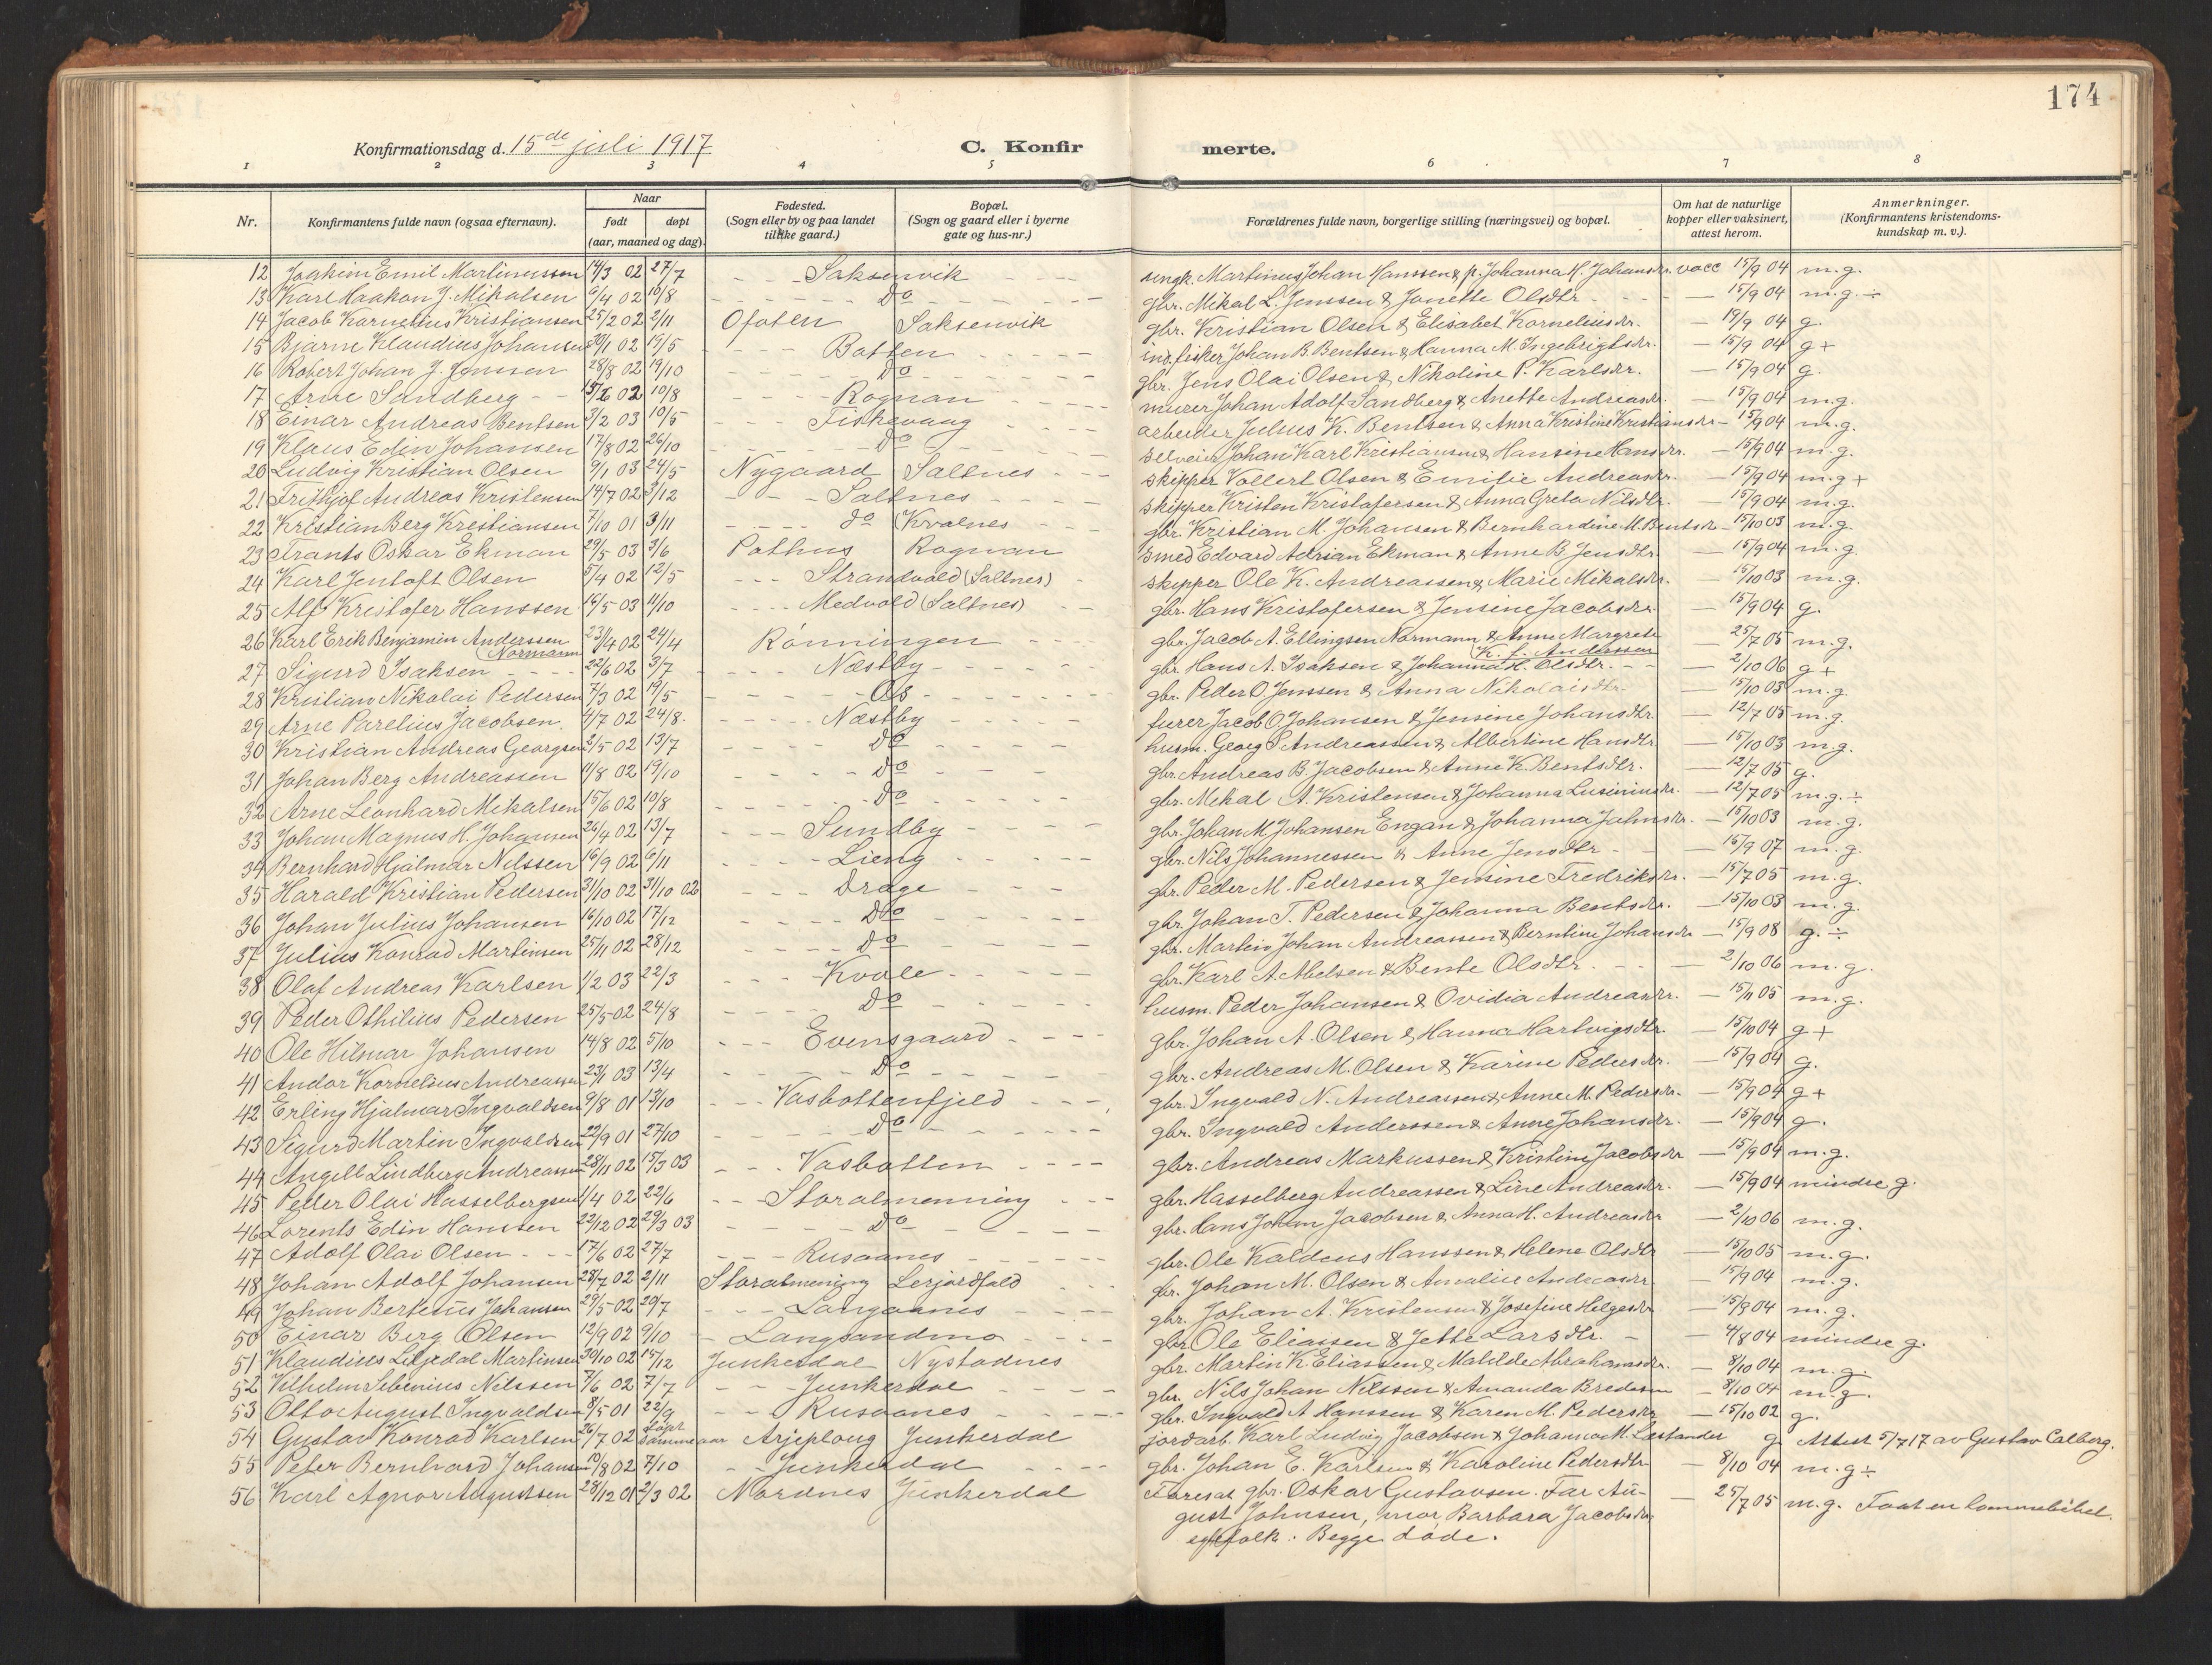 174
Konfirmationsdag d. 15de juli 1917
C. Konfirmerte.
1 2 3 4 5 6 7 8
Nr. Konfirmantens fulde navn (ogsaa efternavn). Naar født døpt (aar, maaned og dag). Fødested. (Sogn eller by og paa landet tillike gaard.) Bopæl. (Sogn og gaard eller i byerne gate og hus-nr.) Forældrenes fulde navn, borgerlige stilling (næringsvei) og bopæl. Om hat de naturlige kopper eller vaksinert, attest herom. Anmerkninger. (Konfirmantens kristendoms-kundskap m. v.).
12 Joakim Emil Martinussen 14/3 02 27/7 - - - Saksenvik - - - ungk. Martinus Johan Hanssen & p. Johanna M. Johansdr. vacc 15/9 04 m.g.
13 Karl Haakon J. Mikalsen 6/4 02 10/8 - - - Do - - - gbr. Mikal L. Jenssen & Janette Olsdtr. - 15/9 04 m.g. ÷
14 Jacob Kornelius Kristiansen 25/2 02 2/11 Ofoten Saksenvik gbr. Kristian Olsen & Elisabet Korneliusdr. - 19/9 04 g.
15 Bjarne Klaudius Johansen 30/1 02 19/5 - - - Botten - - - ind. fisker Johan B. Bentsen & Hanna M. Ingebrigtsdr. - 15/9 04 g+
16 Robert Johan J. Jenssen 28/8 02 19/10 - - - Do - - - gbr. Jens Olai Olsen & Nikoline P. Karlsdr. - 15/9 04 g.
17 Arne Sandberg - - 15/6 02 10/8 - - - Rognan - - - murer Johan Adolf Sandberg & Anette Andreasdr. - 15/9 04 m.g.
18 Einar Andreas Bentsen 3/2 03 10/5 - - - Fiskevaag - - - arbeider Julius K. Bentsen & Anna Kristine Kristiansdr - 15/9 04 m.g.
19 Klaus Edin Johansen 17/8 02 26/10 - - - Do - - - selveier Johan Karl Kristiansen & Hansine Hansdr. - 15/9 04 m.g.
20 Ludvig Kristian Olsen 9/1 03 24/5 Nygaard Saltnes - - skipper Vollert Olsen & Emilie Andreasdr. - 15/9 04 m.g+
21 Frithjof Andreas Kristensen 14/7 02 3/12 - - - Saltnes - - - skipper Kristen Kristofersen & Anna Greta Nilsdtr. - 15/9 04 m.g.
22 Kristian Berg Kristiansen 7/10 01 3/11 - - - do (Kvalnes - - gbr. Kristian M. Johansen & Bernhardine M. Bentsdr - 15/10 03 m.g.
23 Frants Oskar Ekman 29/5 03 3/6 Pothus Rognan smed Edvard Adrian Ekman & Anne B. Jensdtr. - 15/9 04 m.g.
24 Karl Jentoft Olsen 5/4 02 12/5 - - - Strandvold (Saltnes) - skipper Ole K. Andreassen & Marie Mikalsdr. - 15/10 03 m.g.
25 Alf Kristofer Hanssen 16/5 03 11/10 - - - Medvold (Saltnes) gbr. Hans Kristofersen & Jensine Jacobsdr. - 15/9 04 g.
26 Karl Erik Benjamin Anderssen (Normann 23/4 02 24/4 Rønningen - - gbr. Jacob A. Ellingsen Normann & Anne Margrete K. f. Andersen - 25/7 05 m.g.
27 Sigurd Isaksen - - - 22/6 02 3/7 - - - Næstby - - - gbr. Hans A. Isaksen & Johanna H. Olsdtr. - - 2/10 06 g+
28 Kristian Nikolai Pedersen 7/3 02 19/5 - - - Os - - - gbr. Peder O Jenssen & Anna Nikolaisdtr. - 15/10 03 m.g.
29 Arne Parelius Jacobsen 4/7 02 24/8. - - - Næstby - - - furer Jacob O Johansen & Jensine Johansdtr - 12/7 05 m.g.
30 Kristian Andreas Georgsen 2/5 02 13/7 - - - Do - - - husm. Georg S Andreassen & Albertine Hansdtr - 15/10 03 m.g.
31 Johan Berg Andreassen 11/8 02 19/10 - - - Do - - - gbr. Andreas B. Jacobsen & Anne K. Bentsdtr. - 12/7 05 g.
32 Arne Leonhard Mikalsen 15/6 02 10/8 - - - Do - - - gbr. Mikal A. Kristensen & Johanna Lusiniusdr. - 12/7 05 m.g. ÷
33 Johan Magnus H. Johansen 26/4 02 13/7 - - - Sundby - - - gbr. Johan M Johansen Engan & Johanna Johnsdr. - 15/10 03 m.g.
34 Bernhard Hjalmar Nilssen 16/9 02 6/11 - - - Lieng - - - gbr. Nils Johannessen & Anne Jensdtr - - 15/9 07 m.g.
35 Harald Kristian Pedersen 31/10 02 31/10 02 - - - Drage - - - gbr. Peder M. Pedersen & Jensine Fredriksdr. - 15/7 05 m.g.
36 Johan Julius Johansen 16/10 02 17/12 - - - Do - - - gbr. Johan T. Pedersen & Johanna Bentsdr. - 15/10 03 m.g.
37 Julius Konrad Martinsen 25/11 02 28/12 - - - Do - - - gbr. Martin Johan Andreassen & Berntine Johansdr - 15/9 08 g. ÷
38 Olaf Andreas Karlsen 1/2 03 22/3 - - Kvale - - - gbr. Karl A. Abelsen & Bente Olsdtr. - - 2/10 06 m.g.
39 Peder Othilius Pedersen 25/5 02 24/8 - - - Do - - - husm. Peder Johansen & Ovidia Andreasdr. - 15/11 05 m.g.
40 Ole Hilmar Johansen 14/8 02 5/10 - - - Evensgaard - - - gbr. Johan A. Olsen & Hanna Hartvigsdtr. - 15/10 04 g+
41 Andor Kornelius Andreassen 23/1 03 13/4 - - - Do - - - gbr. Andreas M. Olsen & Karine Pedersdr. - 15/9 04 g.
42 Erling Hjalmar Ingvaldsen 9/8 01 13/10 - - - Vasbottenfjeld - - - gbr. Ingvald N. Andreassen & Anne M. Pedersdr. - 15/9 04 g+
43 Sigurd Martin Ingvaldsen 22/9 01 27/10 - - - Do - - - gbr. Ingvald Anderssen & Anne Johansdr. - 15/9 04 g.
44 Angell Lindberg Andreassen 28/11 02 15/3 03 - - - Vasbotten - - - gbr. Andreas Markussen & Kristine Jacobsdr - 15/9 04 m.g.
45 Peder Olai Hasselbergsen 1/4 02 22/6 - - Storalmenning - - gbr. Hasselberg Andreassen & Line Andreasdr. - 15/9 04 mindre g.
46 Lorents Edin Hanssen 22/12 02 29/3 03 - - - Do - - - gbr. Hans Johan Jacobsen & Anna H. Andreasdr - 2/10 06 m.g.
47 Adolf Olai Olsen - - 17/6 02 27/7 - - - Rusaanes - - - gbr. Ole Kaldeus Hanssen & Helene Olsdtr - 15/10 05 m.g.
48 Johan Adolf Johansen 28/7 02 2/11 Storalmening Lerjordfald - - gbr. Johan M. Olsen & Amalie Andreasdr. - 15/9 04 m.g.
49 Johan Berteus Johansen 29/5 02 29/7 - - - Langaanes - - - gbr. Johan A. Kristensen & Josefine Helgesdr - 15/9 04 m.g.
50 Einar Berg Olsen 12/9 02 9/10 - Langsandmo - - - gbr Ole Eliassen & Jette Larsdtr. - - 4/8 04 mindre g.
51 Klaudius Liljedal Martinsen 30/10 02 15/12 Junkerdal Nystadnes gbr. Martin K. Eliassen & Matilde Abrahamsdr. - 8/10 04 m.g.
52 Vilhelm Sibenius Nilssen 7/6 02 7/7 - - - Junkerdal - - - gbr. Nils Johan Nilssen & Amanda Bredesen - 8/10 04 m.g.
53 Otto August Ingvaldsen 8/5 01 22/9 - - Rusaanes - - - gbr. Ingvald A Hanssen & Karen M. Pedersdtr - 15/10 02 g.
54 Gustav Konrad Karlsen 26/7 02 døpt samme aar Arjeploug Junkerdal jordarb. Karl Ludvig Jacobsen & Johanna M. Læstander g. Attest 5/7 17 av Gustav Calberg.
55 Peter Bernhard Johansen 10/8 02 7/10 - Junkerdal - - - gbr. Johan E. Karlsen & Karoline Pedersdtr - 8/10 04 m.g ÷
56 Karl Agnor Augustsen 28/12 01 2/3 02 Nordnes Junkerdal Foresat gbr. Oskar Gustavsen. Far Au- - 25/7 05 m.g. Faat en lommebibel.
gust Johnsen, mor, Barbara Jacobsdr
egtefolk. Begge døde.